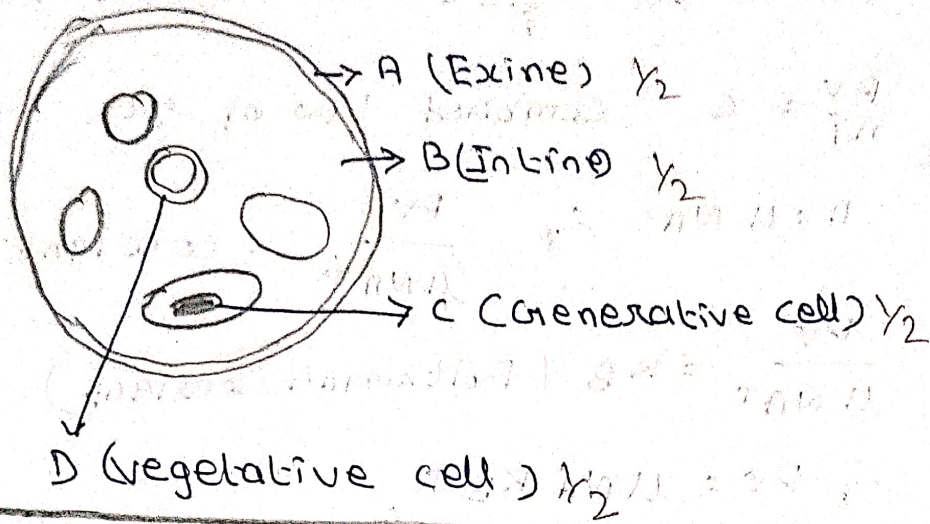 A (Exine) 1/2
B (Intine) 1/2
C (Generative cell) 1/2
D (vegetative cell) 1/2